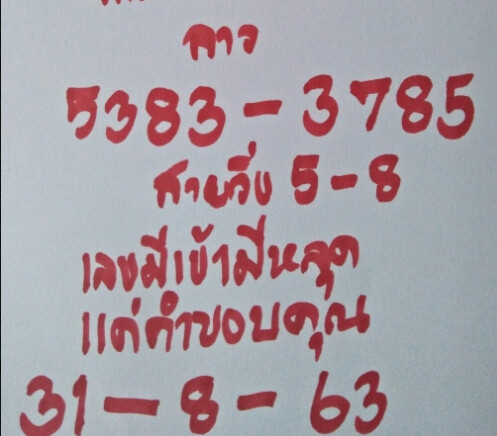 ลาว
5383-3785
สายวิ่ง 5-8
เลขมีเข้ามีหลุด
แค่คำขอบคุณ
31-8-63